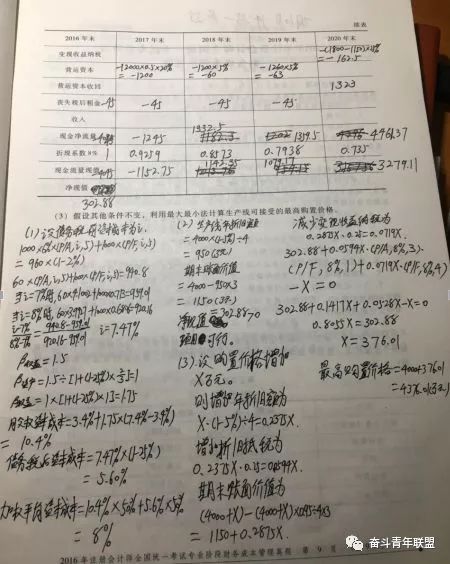 续表
2016 年末 2017 年末 2018 年末 2019 年末 2020 年末
变现收益纳税 -(1800-1150)×25% =-162.5
营运资本 -12000×0.5×20% =-1200 -1200×5% =-60 -1260×5% =-63
营运资本收回 1323
丧失税后租金 -45 -45 -45 -45
收入
现金净流量 -1245 1332.5 1359.5 4461.37
折现系数8% 1 0.9259 0.8573 0.7938 0.735
现金流量现值 -1152.75 1142.35 1079.17 3279.11
净现值
302.88
(3) 假设其他条件不变，利用最大最小法计算生产线可接受的最高购置价格。
(1)设债务税前资本成本为i.
1000×6%×(P/A,i,5)+1000×(P/F,i,5)
=960×(1-2%)
60×(P/A,i,5)+1000×(P/F,i,5)=940.8
i=7.47%
β权益=1.5
β资产=1.5÷[1+(1-25%)×
权益=1×[1+(1-25%)×1]=1.75
股权资本成本=3.4%+1.75×(7.4%-3.4%)
=10.4%
债务税后资本成本=7.47%×(1-25%)
=5.60%
加权平均资本成本=10.4%×50%+5.6%×50%
=8%
(2)生产线年折旧额
=4000×(1-5%)÷4
=950(万元)
期末账面价值
=4000-950×3
=1150(万元)
净现值=302.88>0
可行.
(3)设购置价格增加
X万元.
则增加年折旧额为
X·(1-5%)÷4=0.2375X.
增加折旧抵税为
0.2375X·0.25=0.0594X.
期末账面价值为
(4000+X)-(4000+X)×0.95÷4×3
=1150+0.2875X.
减少变现收益纳税为
0.2875X·0.25=0.0719X.
302.88+0.0594X·(P/A,8%,3)·
(P/F,8%,1)+0.0719X·(P/F,8%,4)
-X=0
302.88+0.1417X+0.0528X-X=0
0.8055X=302.88
X=376.01
最高购置价格=4000+376.01
=4376.01(万元)
2016 年注册会计师全国统一考试专业阶段财务成本管理真题 第 9 页
奋斗青年联盟